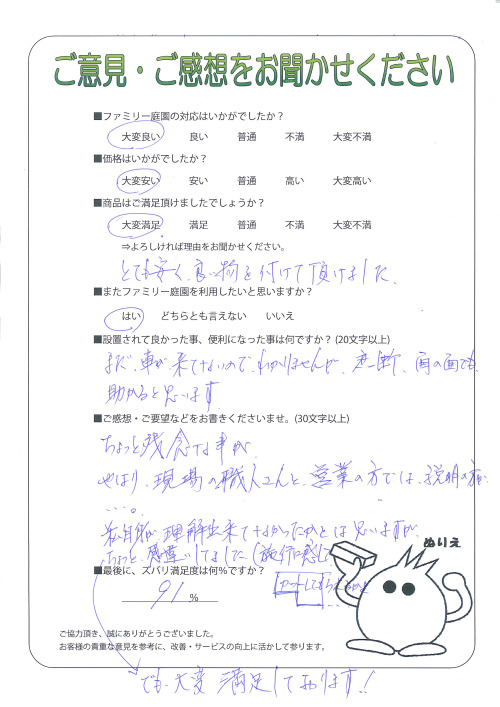 ご意見・ご感想をお聞かせください
■ファミリー庭園の対応はいかがでしたか？
大変良い 良い 普通 不満 大変不満
■価格はいかがでしたか？
大変安い 安い 普通 高い 大変高い
■商品はご満足頂けましたでしょうか？
大変満足 満足 普通 不満 大変不満
⇒よろしければ理由をお聞かせください。
とても安く、良い物を付けて頂けました、
■またファミリー庭園を利用したいと思いますか？
はい どちらとも言えない いいえ
■設置されて良かった事、便利になった事は何ですか？(20文字以上)
まだ、車が来てないので、わかりませんが、 雨の面でも
助かると思います
■ご感想・ご要望などをお書きくださいませ。(30文字以上)
ちょっと残念な事が
やはり、現場の職人さんと、営業の方では、説明の方が
…。
私自身が理解出来てなかったのかとは思いますが、
ちょっと、感違いしてました(施行に感して
■最後に、ズバリ満足度は何％ですか？
91 %
ぬりえ
ご協力頂き、誠にありがとうございました。
お客様の貴重な意見を参考に、改善・サービスの向上に活かして参ります。
でも、大変満足しております!!